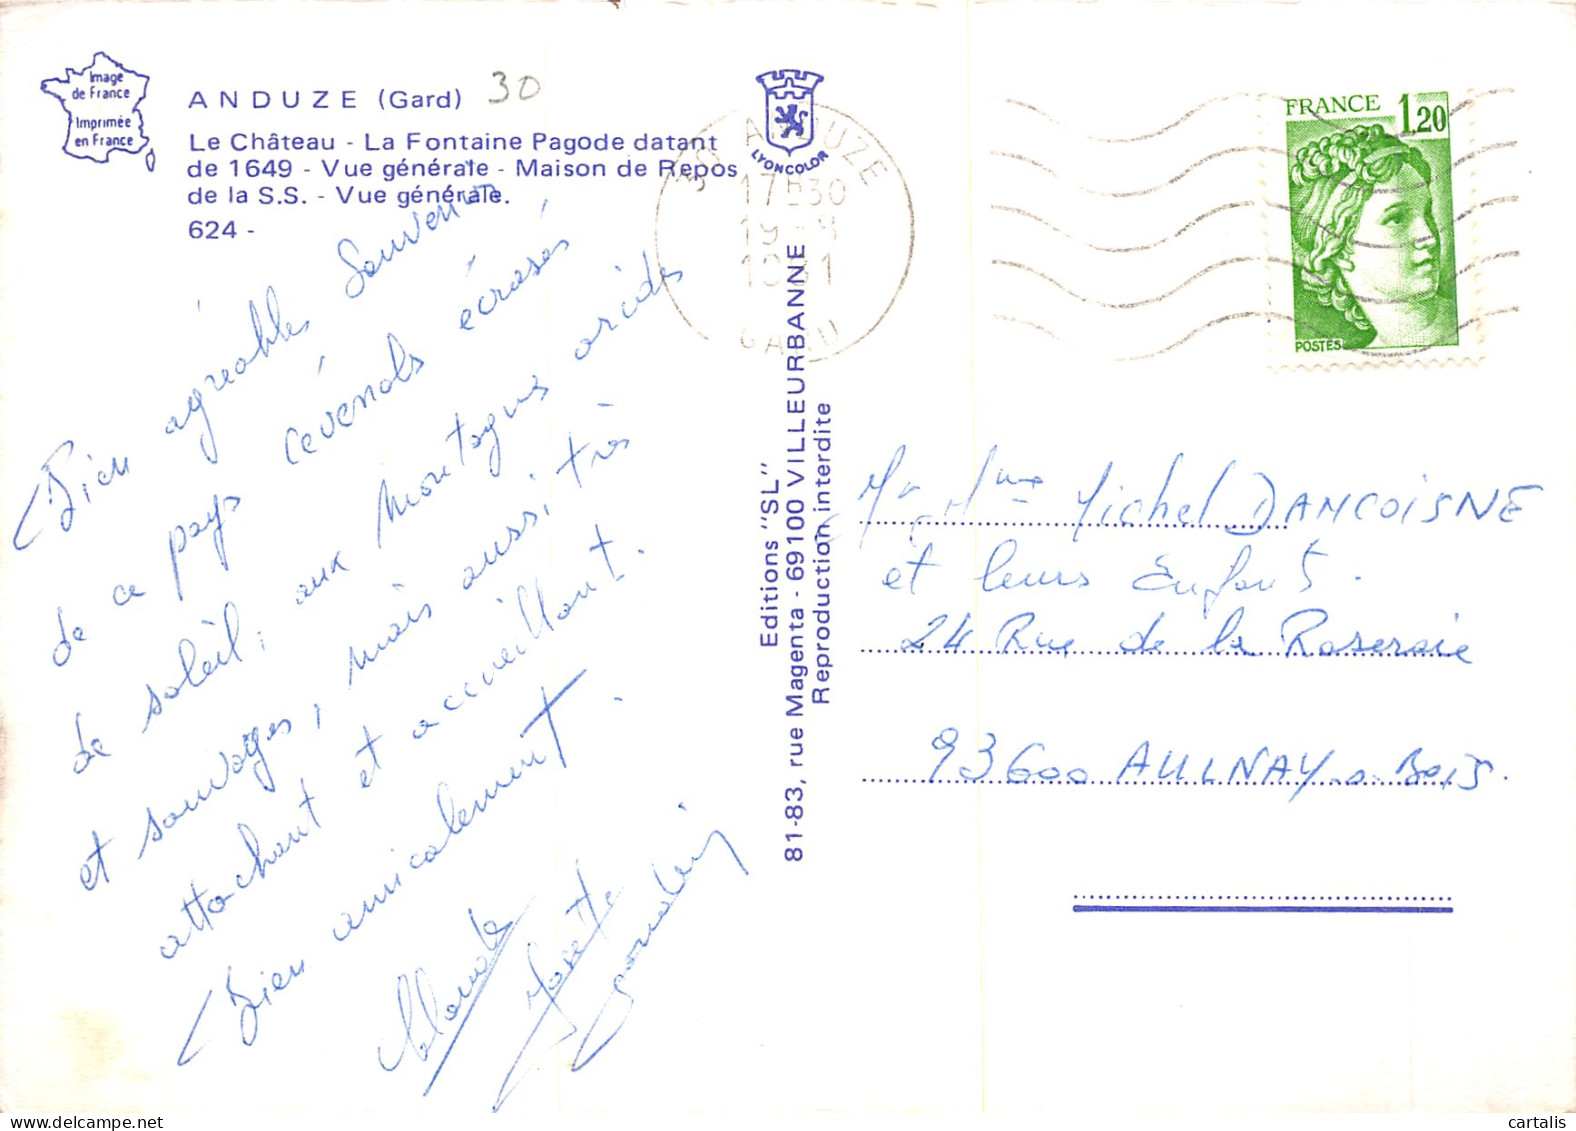 Image
de France
Imprimée
en France
ANDUZE (Gard) 30
Le Château - La Fontaine Pagode datant
de 1649 - Vue générale - Maison de Repos
de la S.S. - Vue générale.
624 -
Bien agréables souvenirs
de ce pays cévenols écrasés
de soleil, aux montagnes arides
et sauvages, mais aussi très
attachant et accueillant.
Bien amicalement.
Claude
Josette
LYONCOLOR
30 ANDUZE
17H30
19 -8
1981
GARD
Editions "SL"
81-83, rue Magenta - 69100 VILLEURBANNE
Reproduction interdite
FRANCE 1,20
POSTES
Mr Mme Michel DANCOISNE
et leurs Enfants.
24 Rue de la Roseraie
93600 AULNAY s. Bois.
cartalis